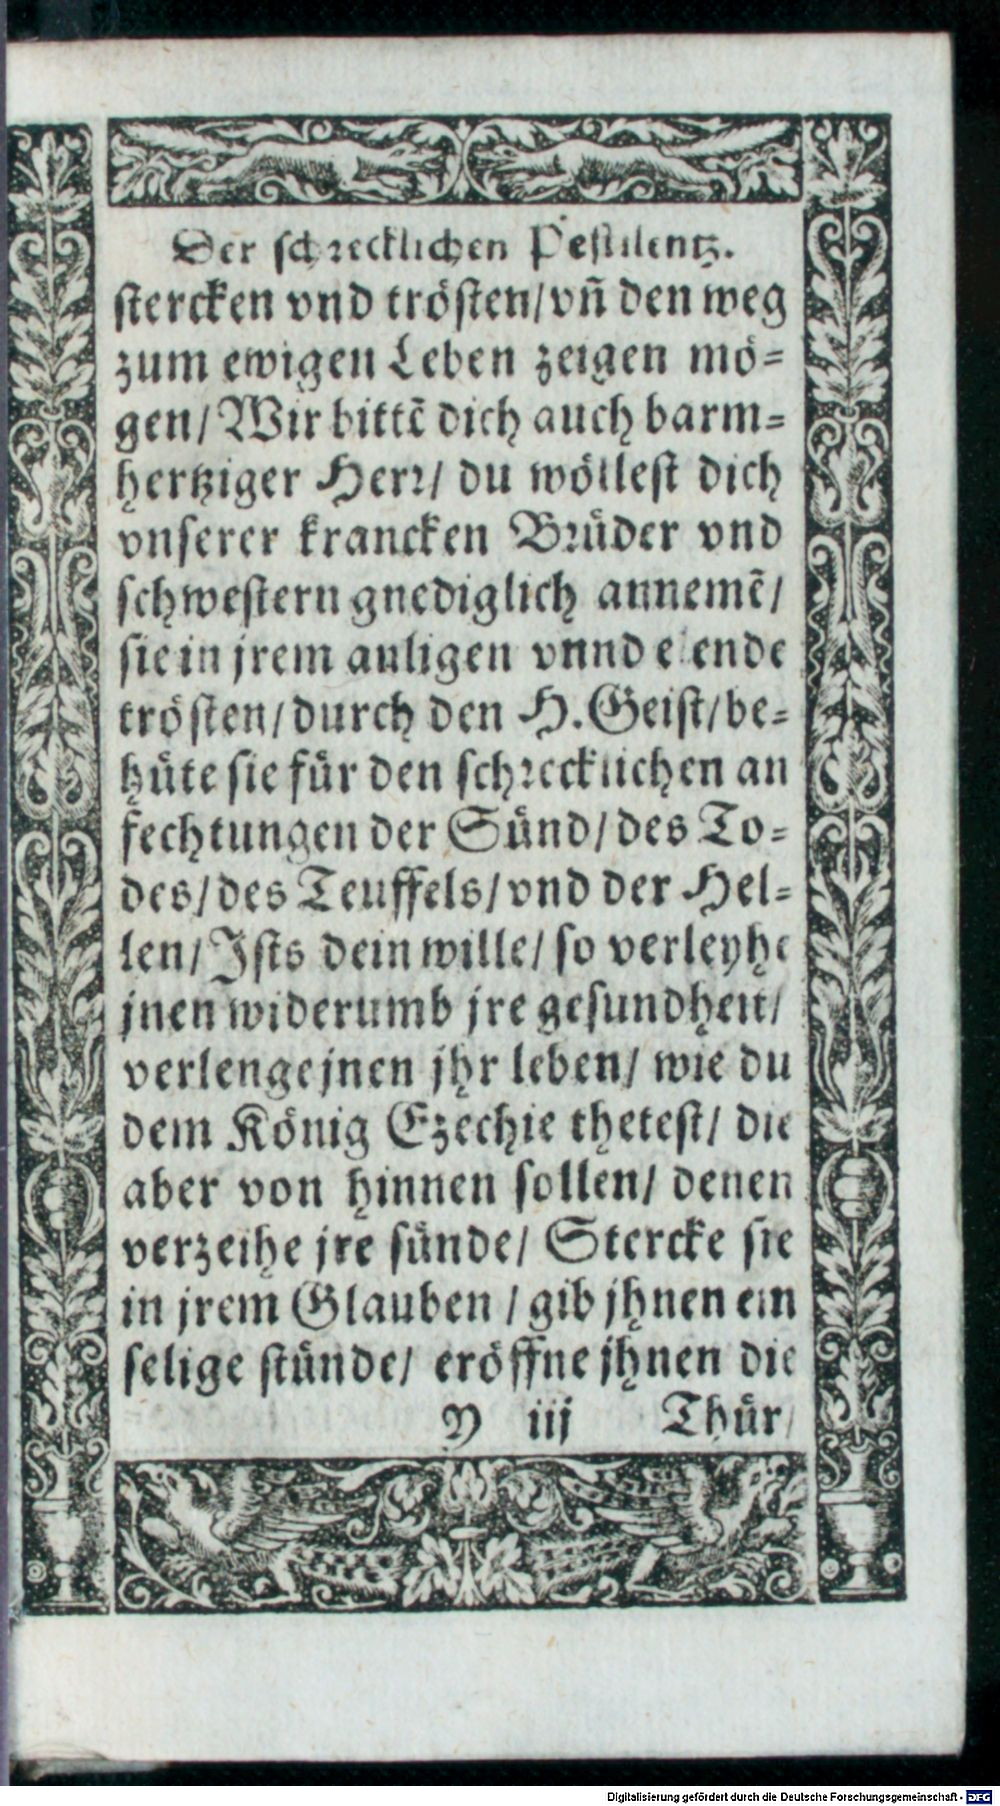 Der schrecklichen Pestilentz.
stercken vnd trösten/vn̄ den weg
zum ewigen Leben zeigen mö=
gen/Wir bittē dich auch barm=
hertziger Herr/ du wöllest dich
vnserer krancken Brüder vnd
schwestern gnediglich annemē/
sie in jrem anligen vnnd elende
trösten/durch den H. Geist/be=
hüte sie für den schrecklichen an
fechtungen der Sünd/des To=
des/des Teuffels/vnd der Hel=
len/Ists dein wille/ so verleyhe
jnen widerumb jre gesundheit/
verlenge jnen jhr leben/ wie du
dem König Ezechie thetest/ die
aber von hinnen sollen/ denen
verzeihe jre sünde/ Stercke sie
in jrem Glauben / gib jhnen ein
selige stünde/ eröffne jhnen die
Y iij Thür/
Digitalisierung gefördert durch die Deutsche Forschungsgemeinschaft - DFG